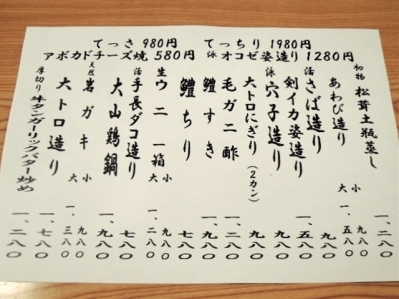 てっさ 980円　てっちり 1980円
アボカドチーズ焼 580円　泳オコゼ姿造り 1280円
初物 松茸土瓶蒸し 一、二八〇
あわび造り 小 九八〇 大 一、五八〇
活 さば造り 九八〇
剣イカ姿造り 一、五八〇
泳 穴子造り 九八〇
大トロにぎり(2カン) 九八〇
毛ガニ酢 一、二八〇
鱧すき 一、九八〇
鱧ちり 七八〇
生ウニ一箱 一、二八〇
活 手長ダコ造り 九八〇
大山鶏鍋 一、九八〇
天然 岩ガキ 小 九八〇 大 一、三八〇
大トロ造り 一、七八〇
厚切り 牛タンガーリックバター炒め 一、二八〇